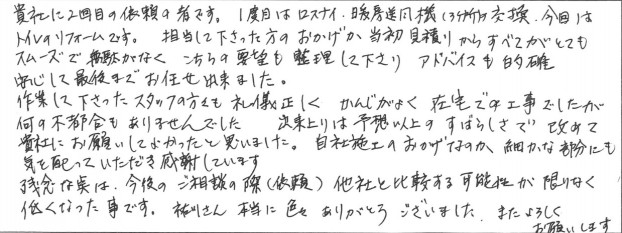 貴社に2回目の依頼の者です。1度目はロスナイ・暖房送風機(3ヶ所)の交換、今回は
トイレのリフォームです。 担当して下さった方のおかげか当初見積りからすべてがとても
スムーズで無駄がなく こちらの要望も整理して下さり アドバイスも的確
安心して最後までお任せ出来ました。
作業して下さったスタッフの方々も礼儀正しく かんじがよく 在宅での工事でしたが
何の不都合もありませんでした 出来上りは予想以上のすばらしさで 改めて
貴社にお願いしてよかったと思いました。自社施工のおかげなのか、細かな部分にも
気を配っていただき感謝しています
残念な実は、今後のご相談の際(依頼)他社と比較する可能性が限りなく
低くなった事です。 さん 本当に色々ありがとうございました。またよろしく
お願いします